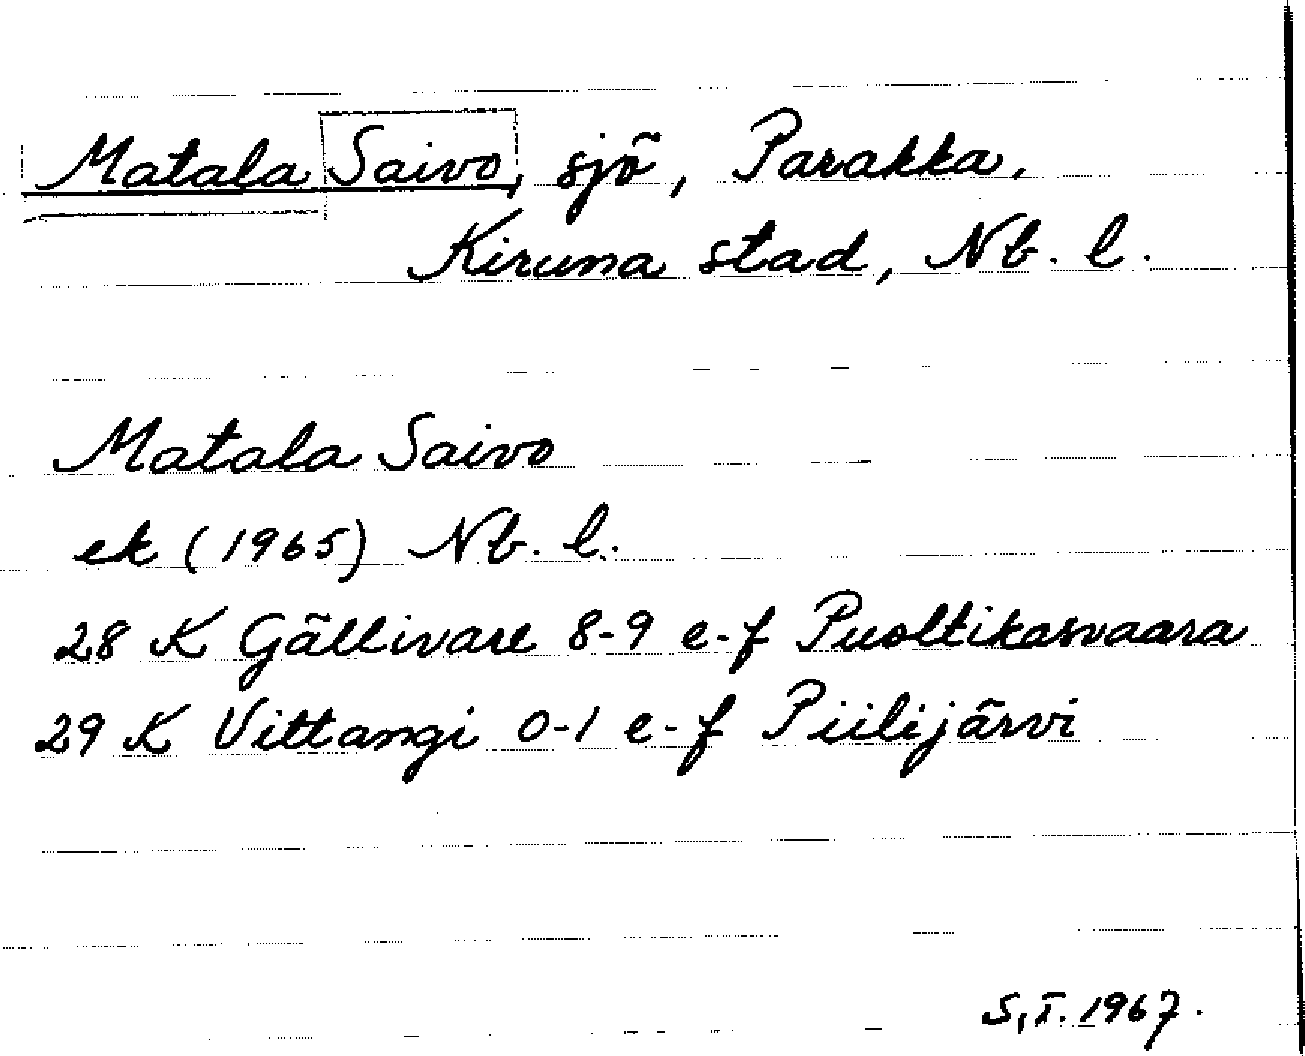 Matala Saivo, sjö, Parakka,
Kiruna stad, Nb. l.
Matala Saivo
ek (1965) Nb. l.
28 K Gällivare 8-9 e-f Puoltikasvaara
29 K Vittangi 0-1 e-f Piilijärvi
S.I. 1967.